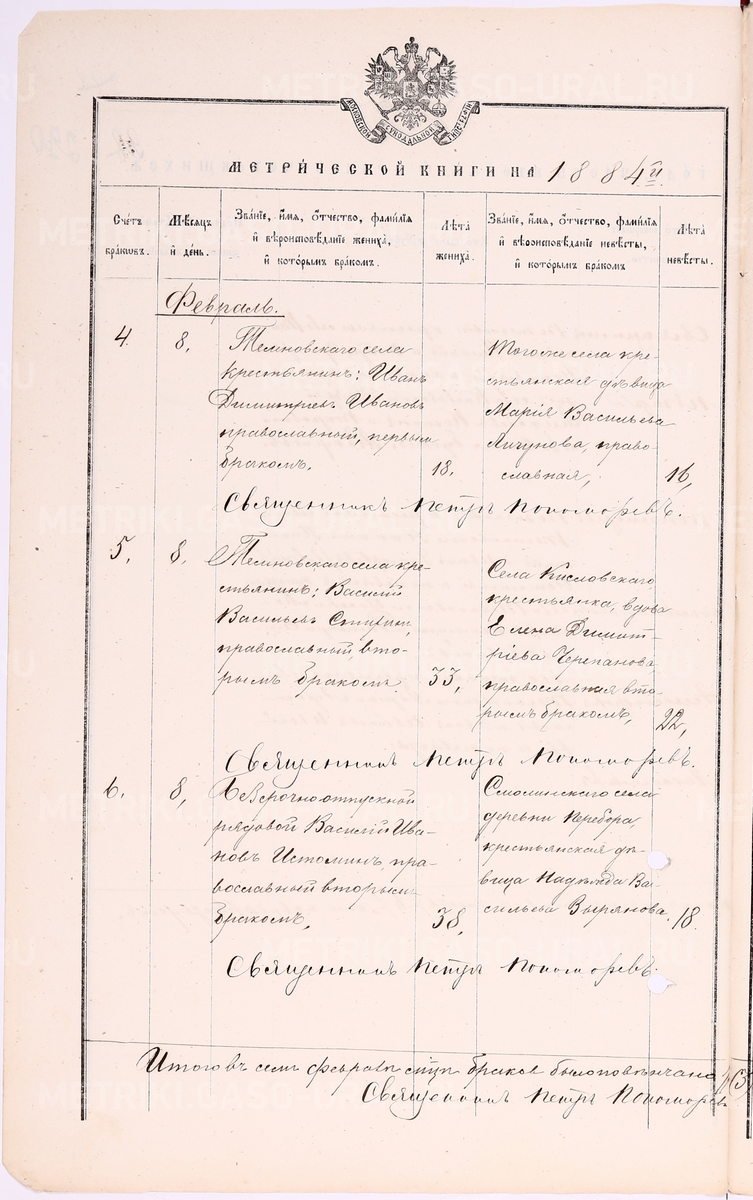 МЕТРИЧЕСКОЙ КНИГИ НА 1884й
Счетъ браковъ.
Мѣсяцъ и день.
Званіе, имя, отчество, фамилія и вѣроисповѣданіе жениха, и которымъ бракомъ.
Лѣта жениха.
Званіе, имя, отчество, фамилія и вѣроисповѣданіе невѣсты, и которымъ бракомъ
Лѣта невѣсты.
Февраль.
4.
8,
Темновскаго села
крестьянинъ: Иванъ
Димитріевъ Ивановъ
православный, первымъ
бракомъ,
18,
Тогоже села кре-
стьянская дѣвица
Марія Васильева
православная,
16,
Священникъ Петръ Пономоревъ.
5,
8,
Темновскаго села кре-
стьянинъ: Василій
Васильевъ
православный, вто-
рымъ бракомъ.
33,
Села Кисловскаго
крестьянка, вдова
Елена Димит-
ріева Черепанова
православная вто-
рымъ бракомъ,
22,
Священникъ Петръ Пономоревъ.
6.
8,
Безсрочноотпускной
рядовой Василій Ива-
новъ Истоминъ, пра-
вославный вторымъ
бракомъ,
38,
Смолинскаго села
деревни Перебора,
крестьянская дѣ-
вица Надежда Ва-
сильева Зырянова.
18.
Священникъ Петръ Пономоревъ.
Итого въ семъ февралѣ браков было повѣнчано (3)
Священникъ Петръ Пономоревъ